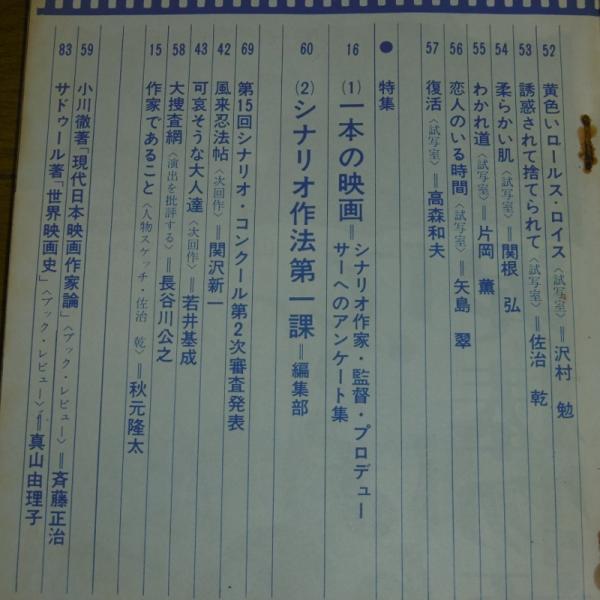 52 黄色いロールス・ロイス〈試写室〉＝沢村 勉
53 誘惑されて捨てられて〈試写室〉＝佐治 乾
54 柔らかい肌〈試写室〉＝関根 弘
55 わかれ道〈試写室〉＝片岡 薫
56 恋人のいる時間〈試写室〉＝矢島 翠
57 復活〈試写室〉＝高森和夫
● 特集
16 (1) 一本の映画＝シナリオ作家・監督・プロデュー
サーへのアンケート集
60 (2) シナリオ作法第一課＝編集部
69 第15回シナリオ・コンクール第2次審査発表
42 風来忍法帖〈次回作〉＝関沢新一
43 可哀そうな大人達〈次回作〉＝若井基成
58 大捜査網〈演出を批評する〉＝長谷川公之
15 作家であること〈人物スケッチ・佐治 乾〉＝秋元隆太
59 小川徹著「現代日本映画作家論」〈ブック・レビュー〉＝斉藤正治
83 サドゥール著「世界映画史」〈ブック・レビュー〉＝真山由理子